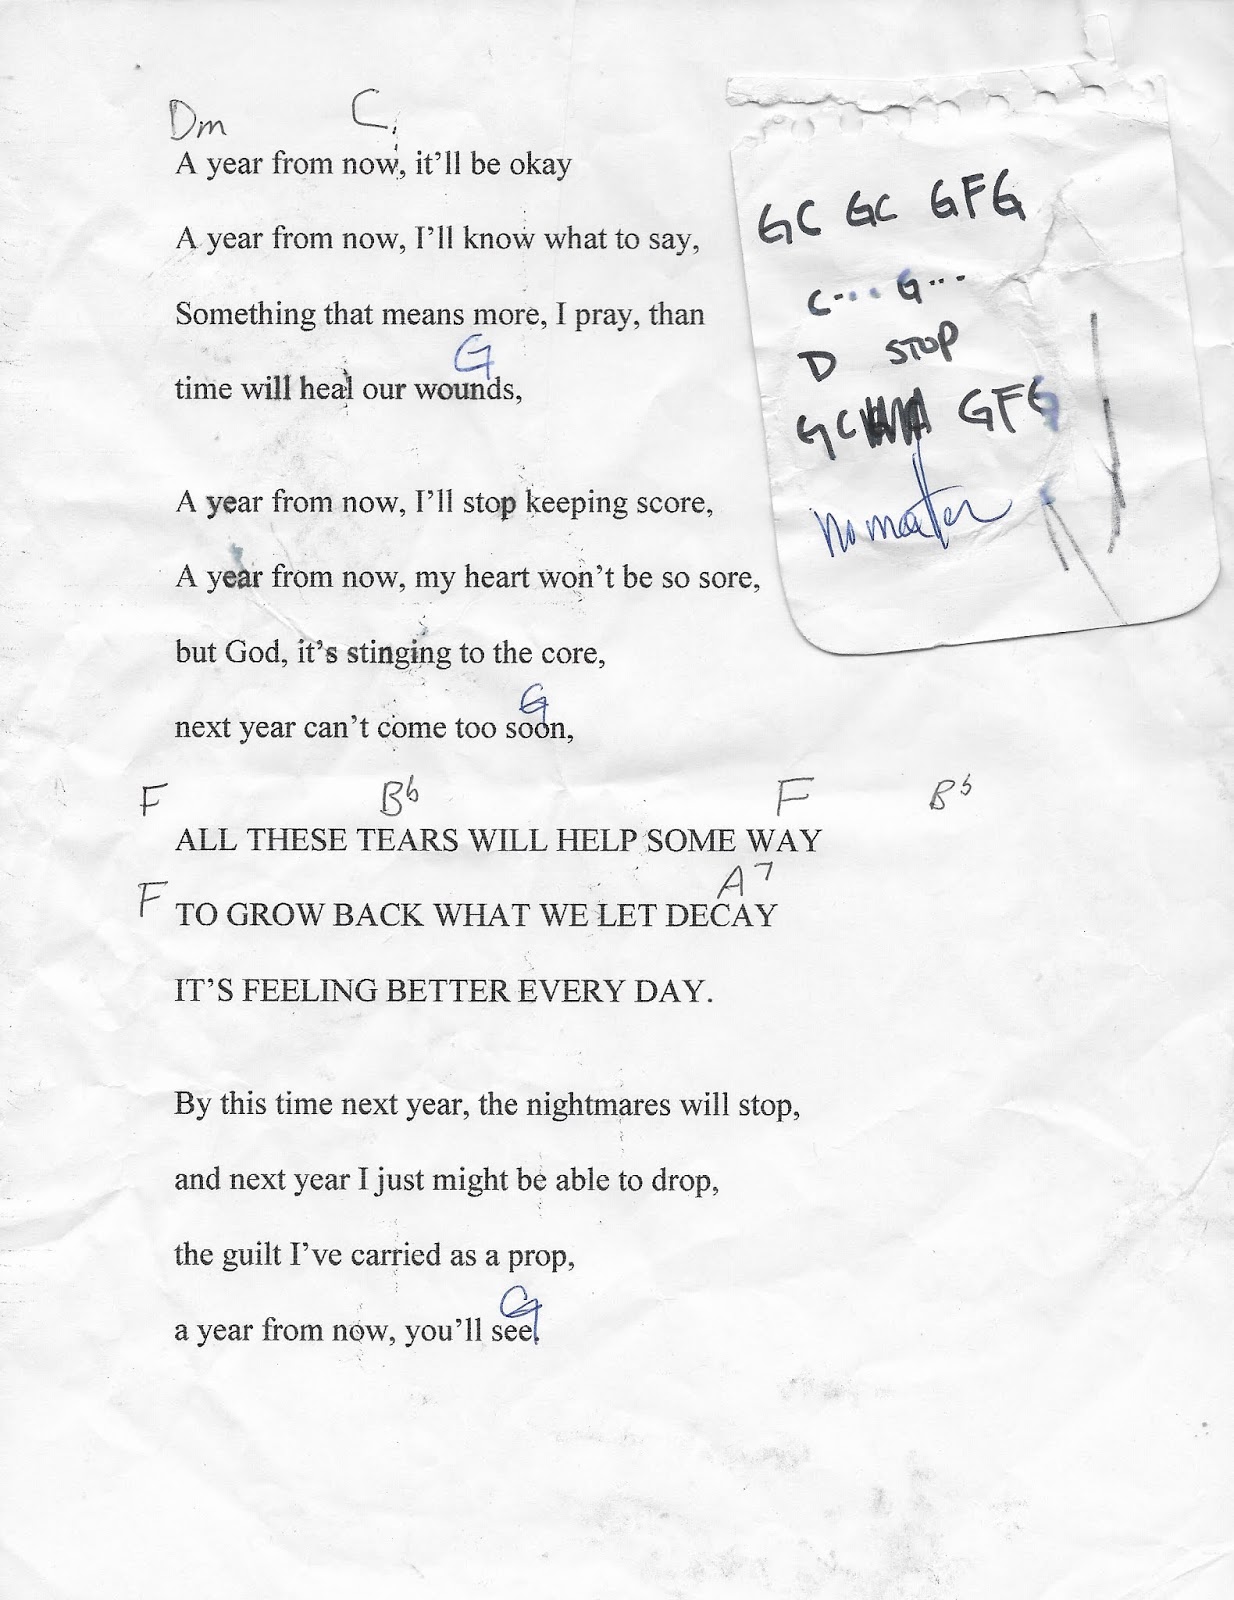 Dm C
A year from now, it'll be okay
A year from now, I'll know what to say,
Something that means more, I pray, than
G
time will heal our wounds,
A year from now, I'll stop keeping score,
A year from now, my heart won't be so sore,
but God, it's stinging to the core,
G
next year can't come too soon,
F Bb F Bb
ALL THESE TEARS WILL HELP SOME WAY
A7
F TO GROW BACK WHAT WE LET DECAY
IT'S FEELING BETTER EVERY DAY.
By this time next year, the nightmares will stop,
and next year I just might be able to drop,
the guilt I've carried as a prop,
G
a year from now, you'll see.
GC GC GFG
C... G...
D STOP
GC GFG
no matter